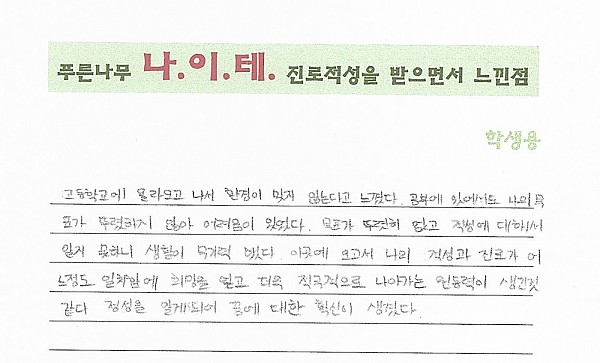 푸른나무 나.이.테. 진로적성을 받으면서 느낀점
학생용
고등학교에 올라오고 나서 환경이 맞지 않는다고 느꼈다. 공부에 있어서도 나의 목
표가 뚜렷하지 않아 어려움이 있었다. 목표가 뚜렷히 없고 적성에 대해서
알지 못하니 생활이 무기력 했다. 이곳에 오고서 나의 적성과 진로가 어
느정도 일치함에 희망을 얻고 더욱 적극적으로 나아가는 원동력이 생긴것
같다 적성을 알게되어 꿈에 대한 확신이 생겼다.